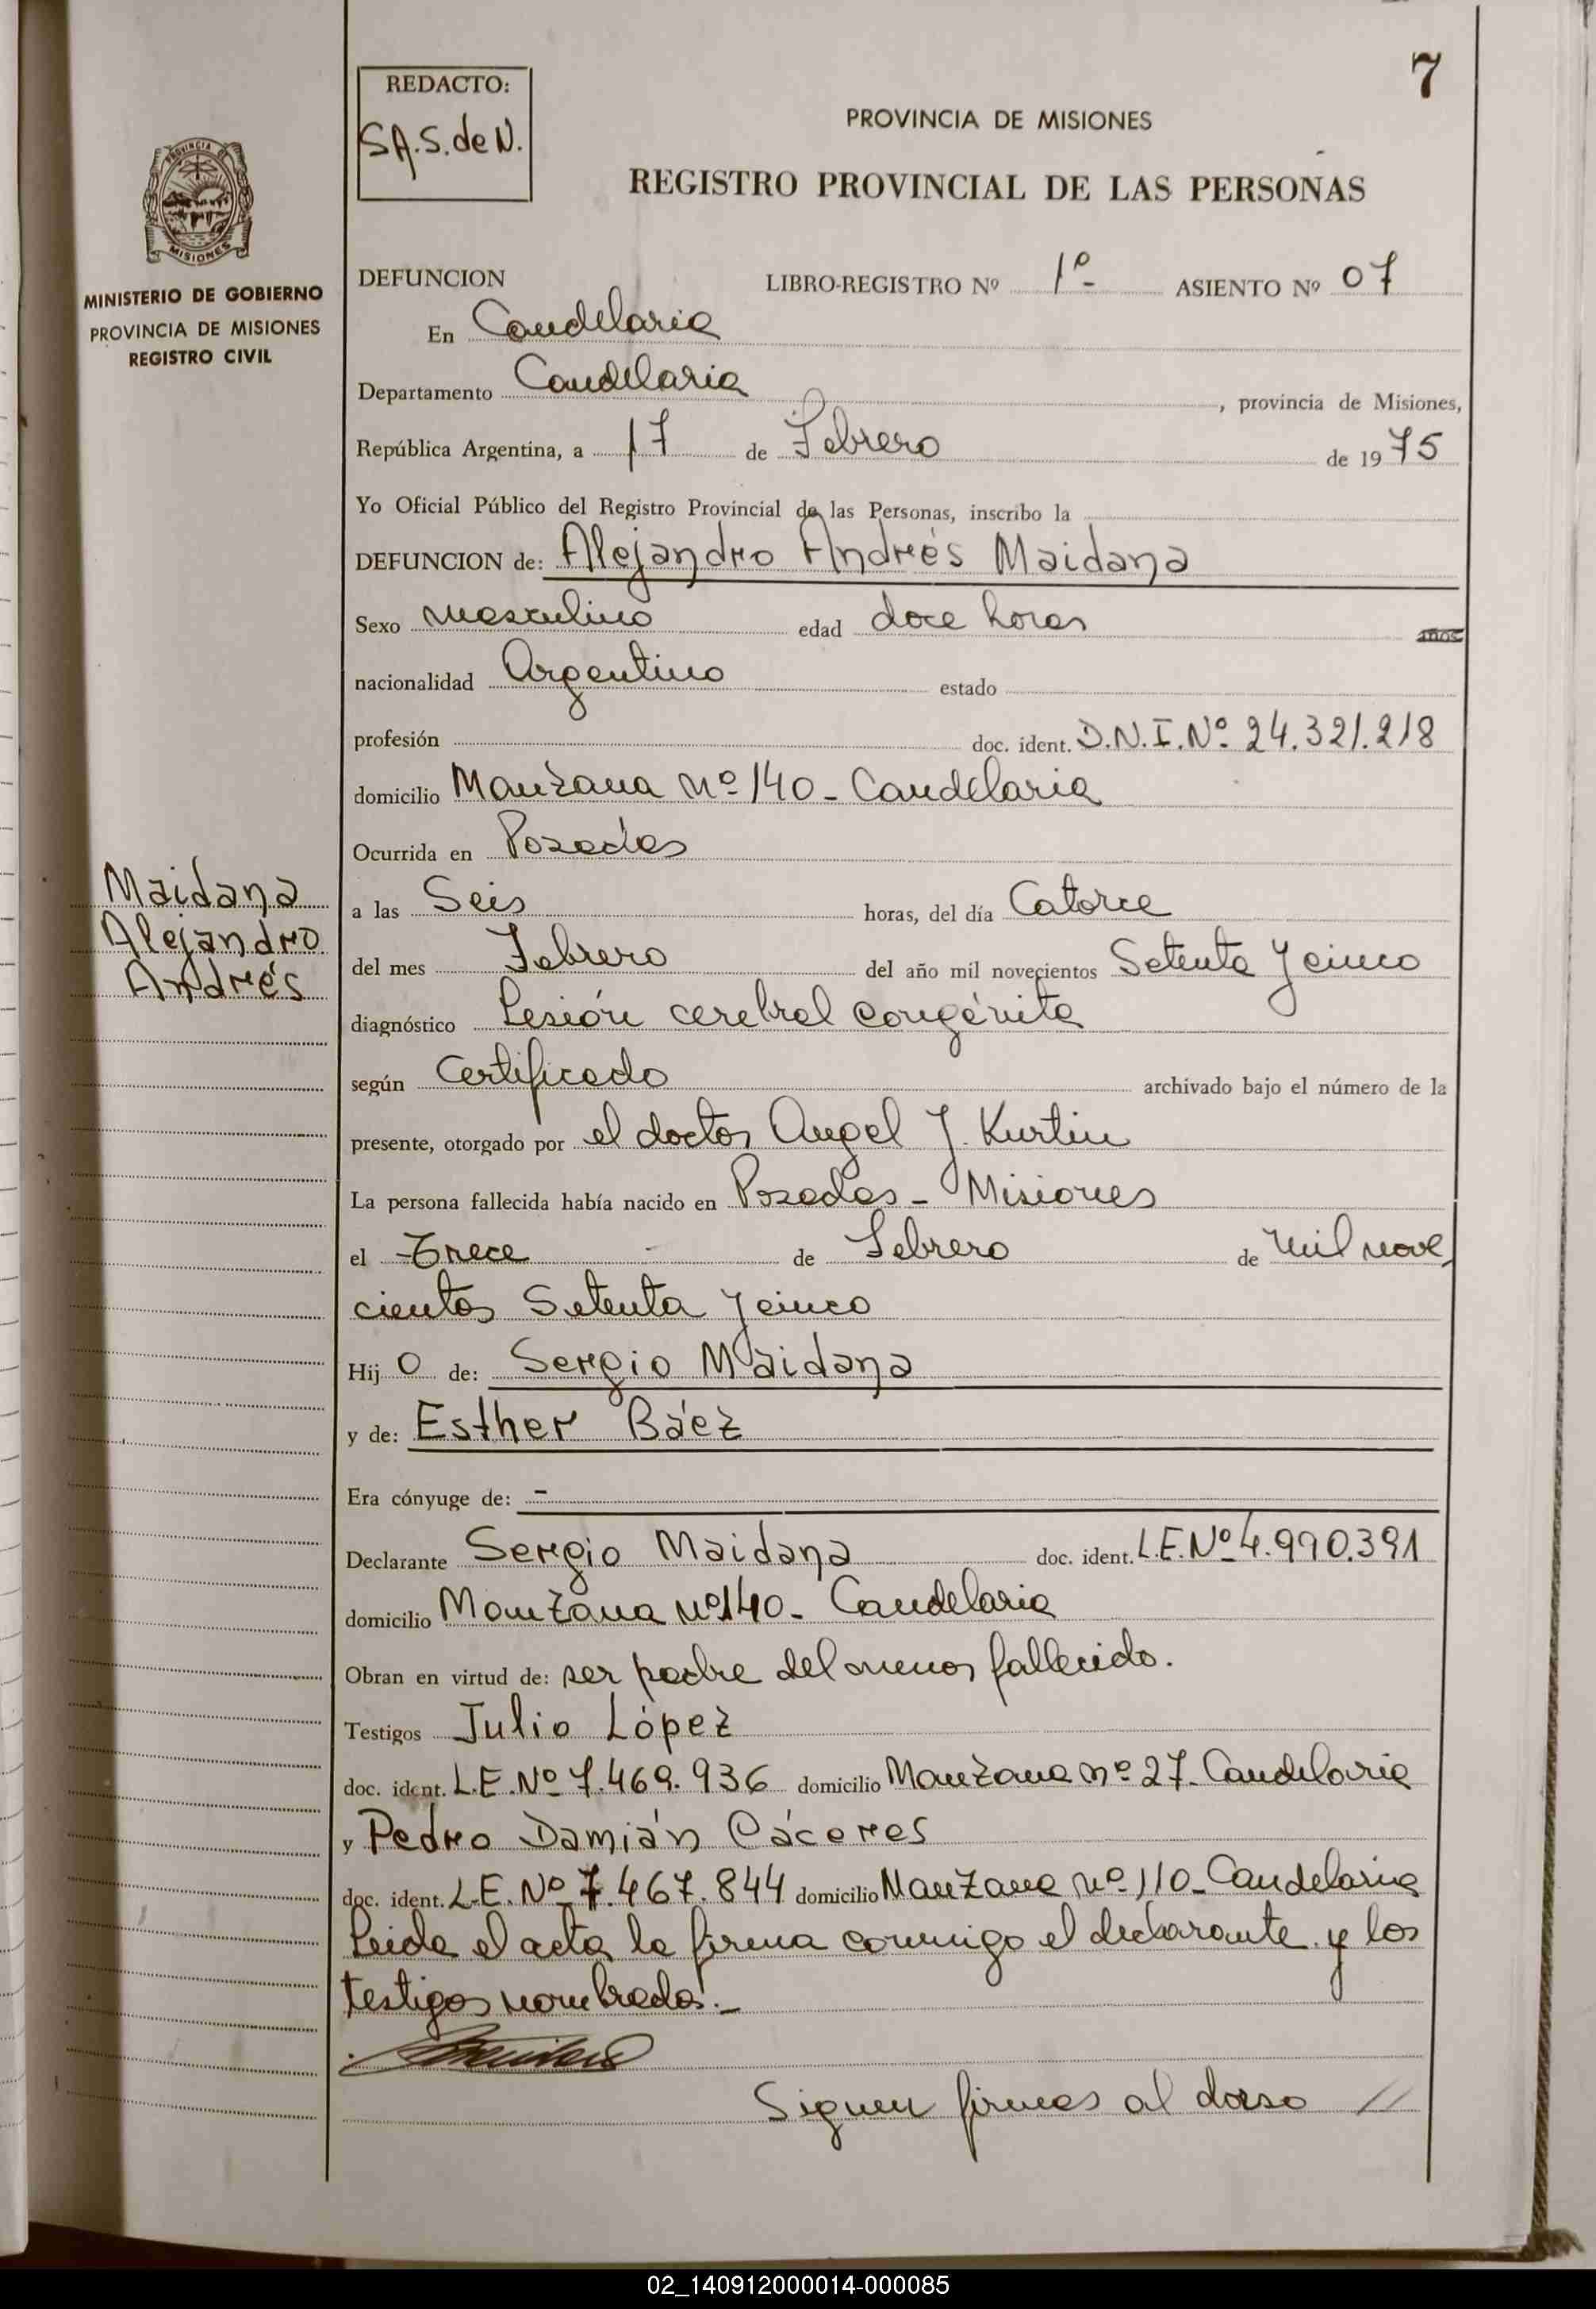 7
REDACTO:
SA.S.deN.
PROVINCIA DE MISIONES
REGISTRO PROVINCIAL DE LAS PERSONAS
PROVINCIA DE
MISIONES
MINISTERIO DE GOBIERNO
PROVINCIA DE MISIONES
REGISTRO CIVIL
DEFUNCION LIBRO-REGISTRO Nº 1º- ASIENTO Nº 07
En Candelaria
Departamento Candelaria, provincia de Misiones,
República Argentina, a 17 de Febrero de 1975
Yo Oficial Público del Registro Provincial de las Personas, inscribo la
DEFUNCION de: Alejandro Andrés Maidana
Sexo masculino edad doce horas años
nacionalidad Argentino estado
profesión doc. ident. D.N.I.Nº 24.321.218
domicilio Manzana Nº 140 - Candelaria
Ocurrida en Posadas
a las Seis horas, del día Catorce
del mes Febrero del año mil novecientos Setenta y cinco
diagnóstico Lesión cerebral congénita
según Certificado archivado bajo el número de la
presente, otorgado por el doctor Angel J. Kurtin
La persona fallecida había nacido en Posadas - Misiones
el Trece de Febrero de mil nove
cientos Setenta y cinco
Hijo de: Sergio Maidana
y de: Esther Báez
Era cónyuge de: -
Declarante Sergio Maidana doc. ident. L.E.Nº 4.990.391
domicilio Manzana nº140- Candelaria
Obran en virtud de: ser padre del menor fallecido.
Testigos Julio López
doc. ident. L.E.Nº 7.469.936 domicilio Manzana nº 27- Candelaria
y Pedro Damián Cáceres
doc. ident. L.E. Nº 7.467.844 domicilio Manzana nº 110- Candelaria
Leida el acta la firma conmigo el declarante y los
testigos nombrados.-
Siguen firmas al dorso //
Maidana
Alejandro
Andrés
02_140912000014-000085